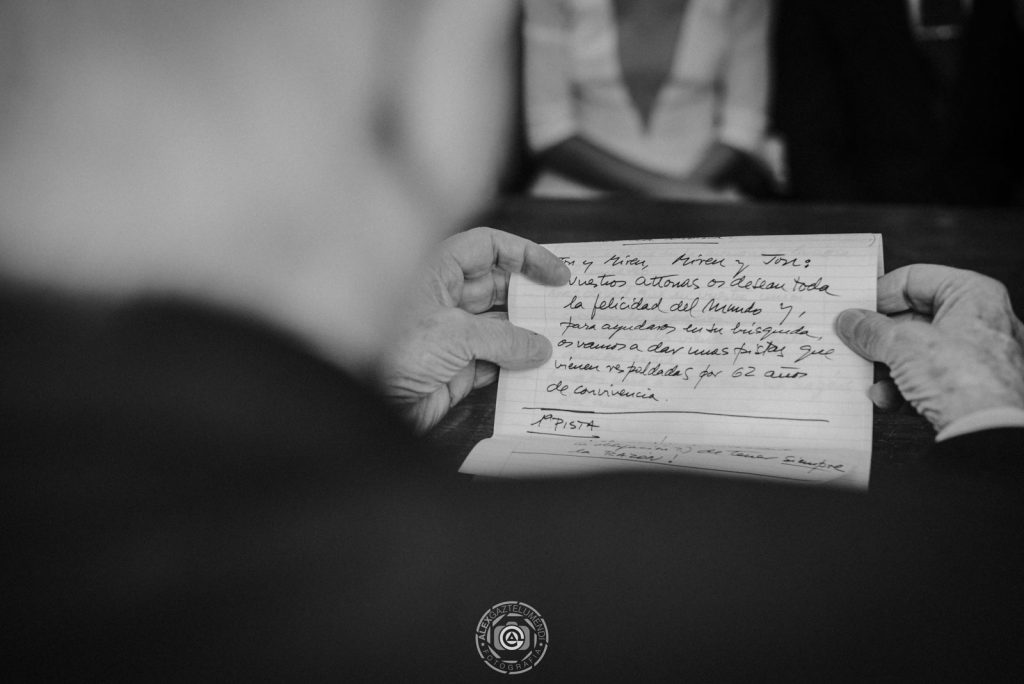 Jon y Miren, Miren y Jon:
vuestros attonas os desean toda
la felicidad del mundo y,
para ayudaros en su búsqueda,
os vamos a dar unas pistas que
vienen respaldadas por 62 años
de convivencia.
1ª PISTA
de tener siempre
la RAZON!
ALEX GAZTELUMENDI
FOTOGRAFIA